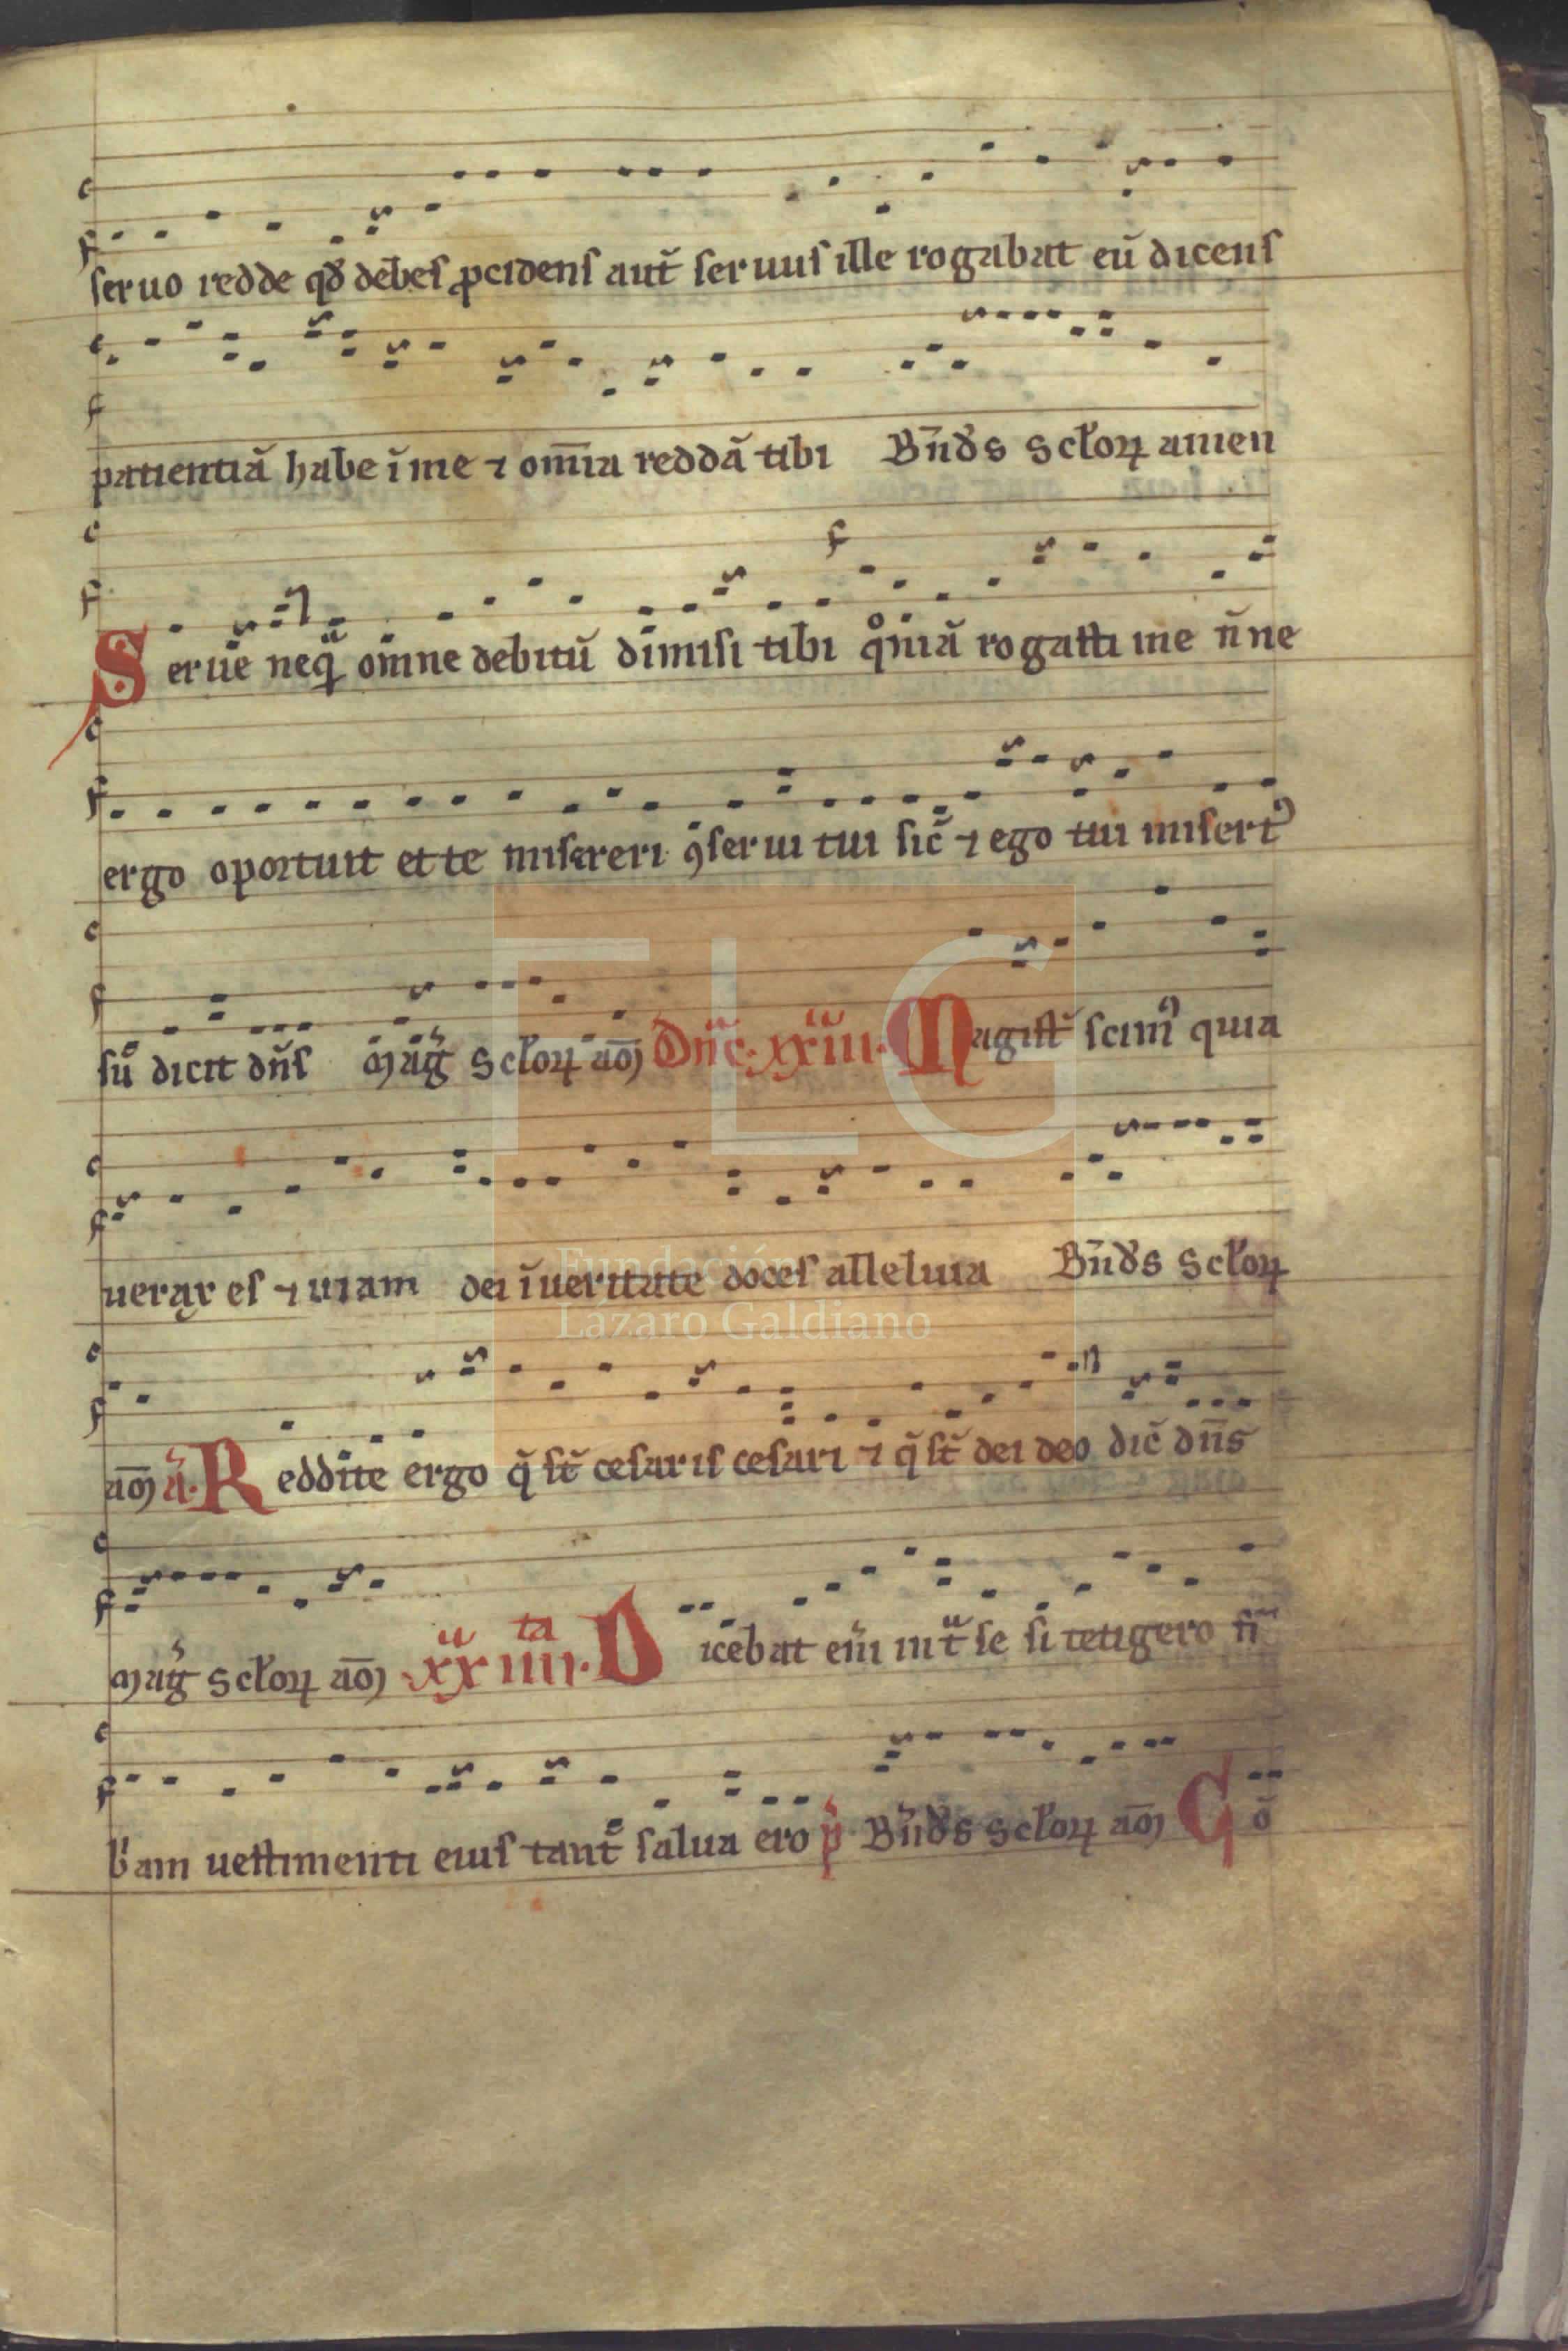 seruo redde qđ debes ꝓcidens aut̄ seruus ille rogabat eū dicens
patientiā habe ī me ⁊ om̄ia reddā tibi Bn̄ds sclōꝝ amen
Serue neqͣ omne debitū dimisi tibi qͦniā rogasti me n̄ne
ergo oportuit et te misereri ꝯserui tui sic̄ ⁊ ego tui misertꝰ
sū dicit dn̄s Mag̃ sclōꝝ am̄ Dn̄c xxiii Magist̄ scimꝰ quia
uerax es ⁊ uiam dei ī ueritate doces alleluia Bn̄ds sclōꝝ
am̄ a Reddite ergo q̄ st̄ cesaris cesari ⁊ q̄ st̄ dei deo dic̄ dn̄s
Mag̃ sclōꝝ am̄ xxiiii ta Dicebat em̄ intͣ se si tetigero fī
b'am uestimenti eius tant̄ salua ero p̄ Bn̄ds sclōꝝ am̄ C ō
FLG
Fundación
Lázaro Galdiano